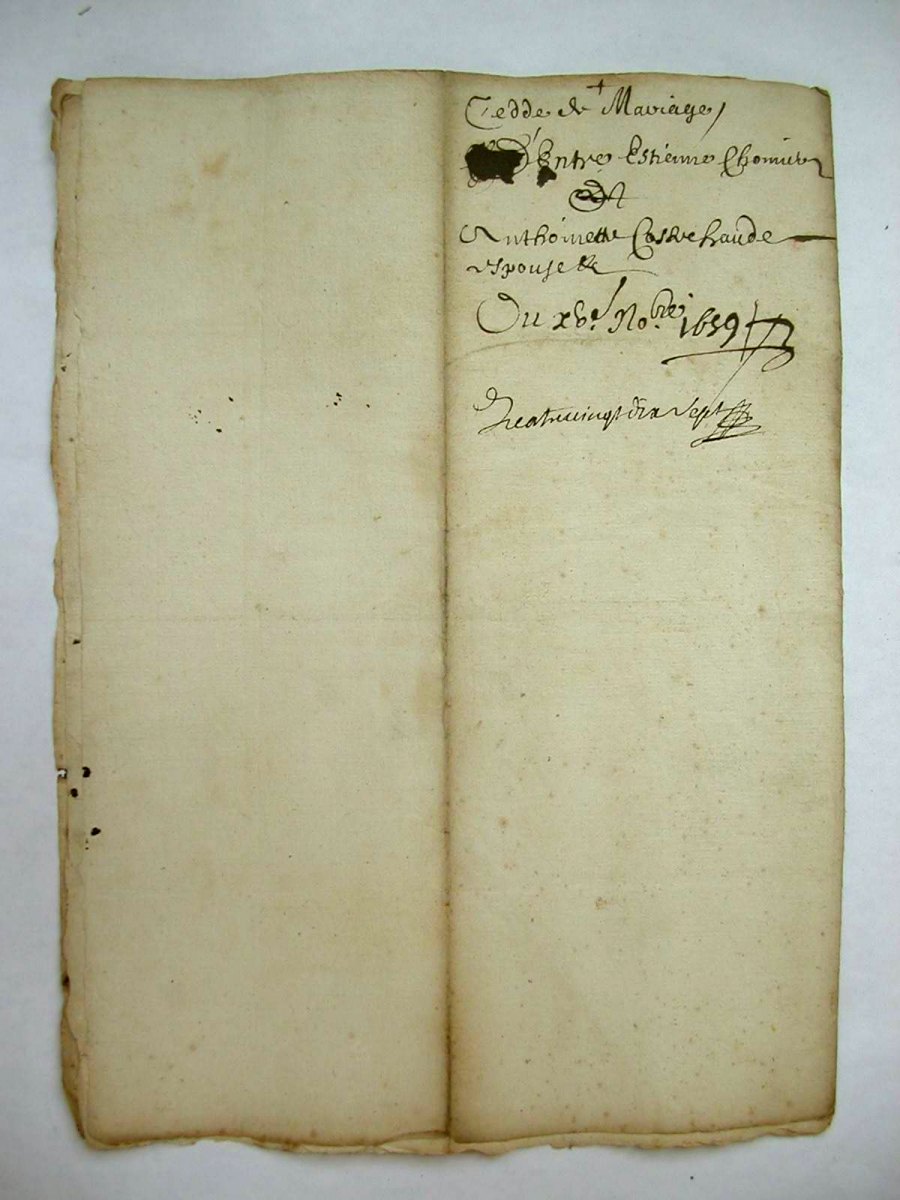 Cedde de + Mariage
d'Entre Estienne Chomier
Et
Anthoinette
espouse
Du xve. Nobre 1659
quatrevingt dix sept